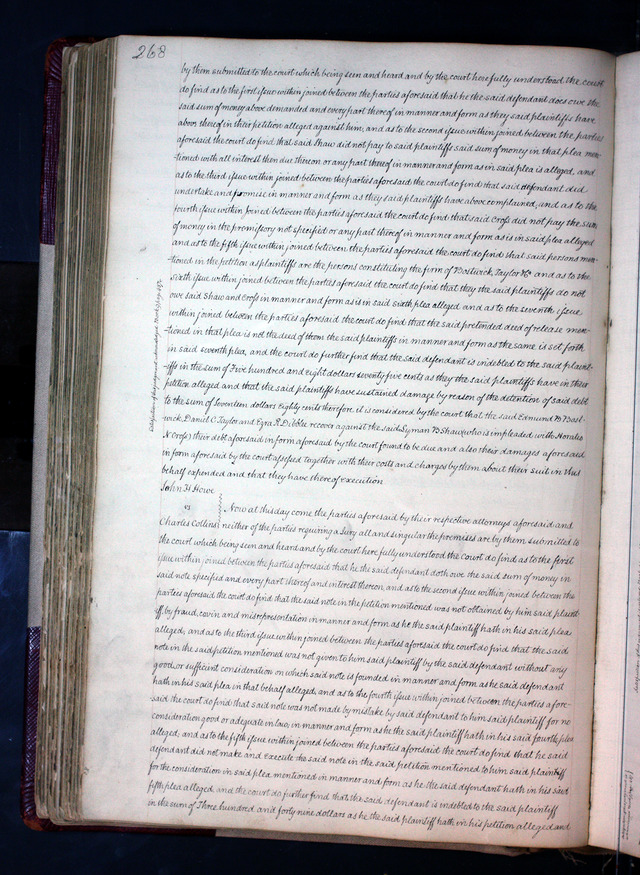 268
by them submitted to the court which being seen and heard and by the court here fully understood the court
do find as to the first issue within joined between the parties aforesaid that he the said defendant does owe the
said sum of money above demanded and every part thereof in manner and form as they said plaintiffs have
above thereof in their petition alleged against him; and as to the second issue within joined between the parties
aforesaid the court do find that said Shaw did not pay to said plaintiffs said sum of money in that plea men-
tioned with all interest then due thereon or any part thereof in manner and form as in said plea is alleged, and
as to the third issue within joined between the parties aforesaid the court do find that said defendant did
undertake and promise in manner and form as they said plaintiffs have above complained, and as to the
fourth issue within joined between the parties aforesaid the court do find that said Cross did not pay the sum
of money in the promissory not specified or any part thereof in manner and form as is in said plea alleged
and as to the fifth issue within joined between the parties aforesaid the court do find that said persons men-
tioned in the petition as plaintiffs are the persons constituting the firm of Bostwick, Taylor &Co and as to the
sixth issue within joined between the parties aforesaid the court do find that they the said plaintiffs do not
owe said Shaw and Cross in manner and form as is in said sixth plea alleged, and as to the seventh issue
within joined between the parties aforesaid the court do find that the said pretended deed of release men-
tioned in that plea is not the deed of them the said plaintiffs in manner and form as the same is set forth
in said seventh plea, and the court do further find that the said defendant is indebted to the said plaint-
iffs in the sum of Five hundred and eight dollars seventy five cents as they the said plaintiffs have in their
petition alleged and that the said plaintiffs have sustained damage by reason of the detention of said debt
to the sum of seventeen dollars Eighty cents therefore it is considered by the court that the said Edmund B Bost-
wick, Daniel C Taylor and Ezra R Dibble recover against the said Lyman B Shaw (who is impleaded with Horatio
N Cross) their debt aforesaid in form aforesaid by the court found to be due and also their damages aforesaid
in form aforesaid by the court assessed together with their costs and charges by them about their suit in this
behalf expended and that they have thereof execution
John H Howe
vs
Charles Collins
Now at this day come the parties aforesaid by their respective attorneys aforesaid and
neither of the parties requiring a Jury all and singular the premises are by them submitted to
the court which being seen and heard and by the court here fully understood the Court do find as to the first
issue within joined between the parties aforesaid that he the said defendant doth owe the said sum of money in
said note specified and every part thereof and interest thereon, and as to the second issue within joined between the
parties aforesaid the court do find that the said note in the petition mentioned was not obtained by him said plaint-
iff by fraud, covin and misrepresentation in manner and form as he the said plaintiff hath in his said plea
alleged; and as to the third issue within joined between the parties aforesaid the court do find, that the said
note in the said petition mentioned was not given to him said plaintiff by the said defendant without any
good or sufficient consideration on which said note is founded in manner and form as he said defendant
hath in his said plea in that behalf alleged, and as to the fourth issue within joined between the parties afore-
said the court do find that said note was not made by mistake by said defendant to him said plaintiff for no
consideration good or adequate in law, in manner and form as he the said plaintiff hath in his said fourth plea
alleged; and as to the fifth issue within joined between the parties aforesaid the court do find that he said
defendant did not make and execute the said note in the said petition mentioned to him said plaintiff
for the consideration in said plea mentioned in manner and form as he the said defendant hath in his said
fifth plea alleged, and the court do further find that the said defendant is indebted to the said plaintiff
in the sum of Three hundred and forty nine dollars as he the said plaintiff hath in his petition alleged and